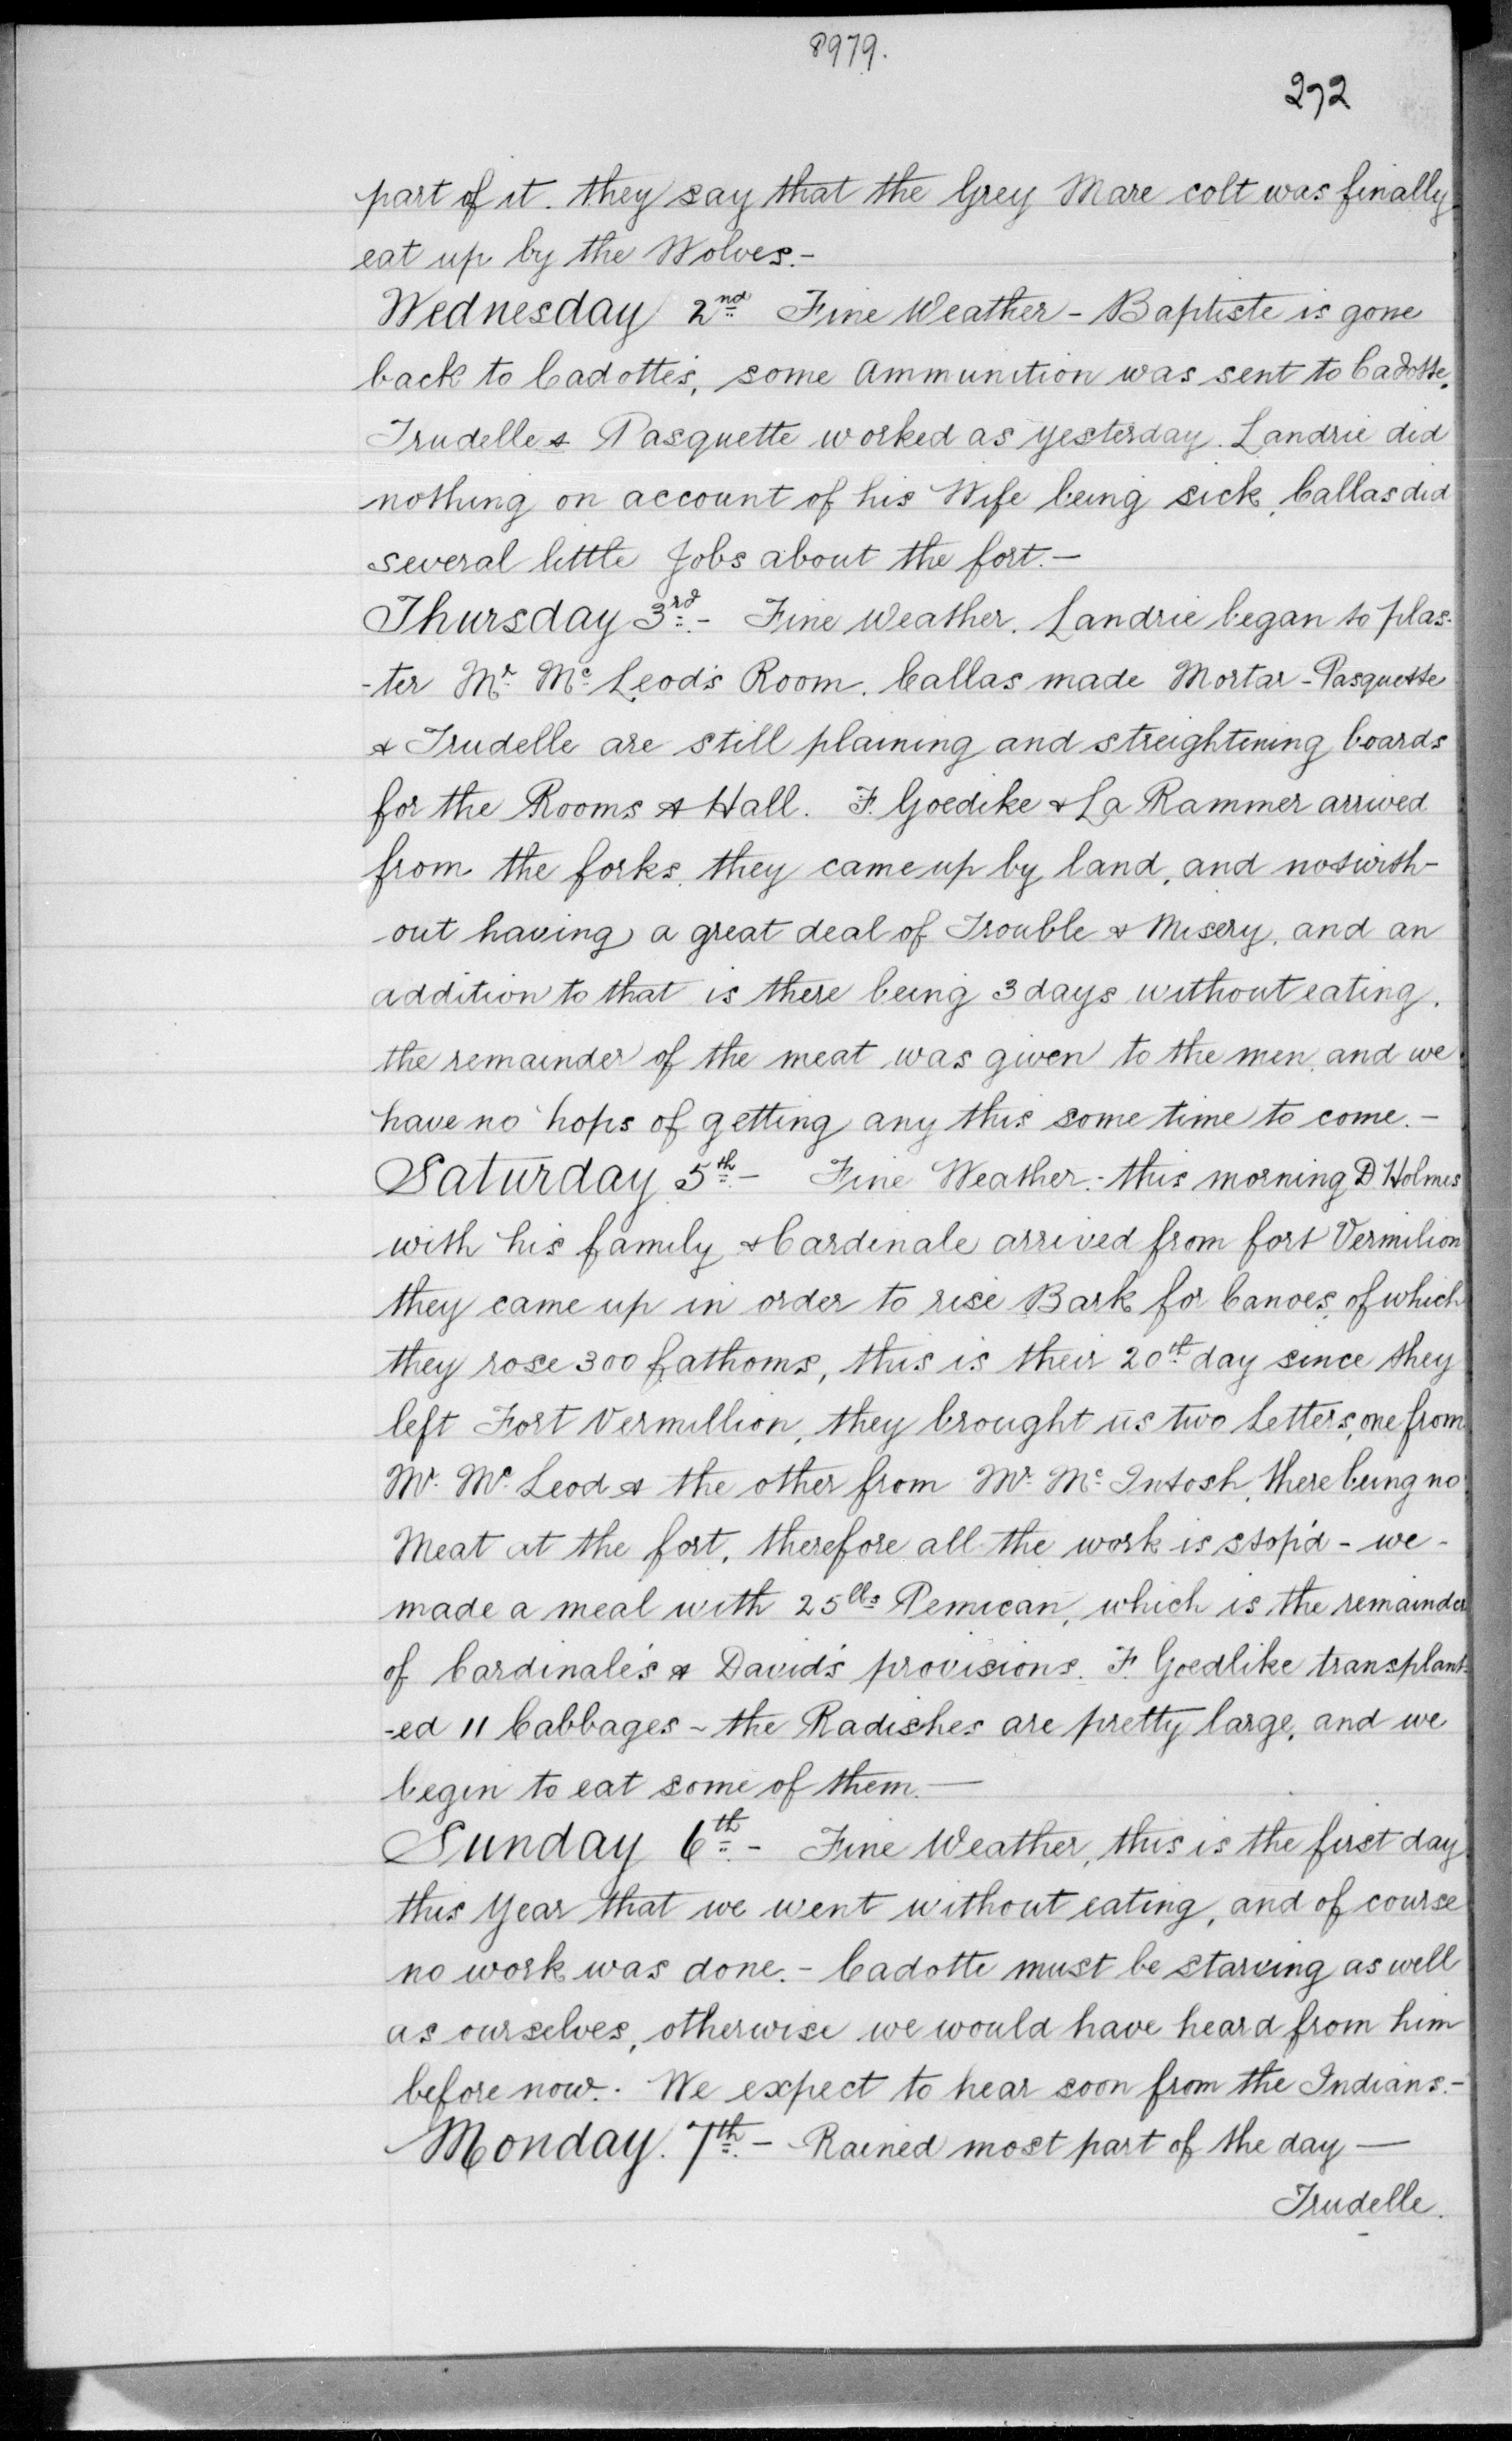 8979.
272
part of it. they say that the Grey Mare colt was finally
eat up by the Wolves.-
Wednesday 2nd Fine Weather - Baptiste is gone
back to Cadotte's, some Ammunition was sent to Cadotte,
Trudelle & Pasquette worked as yesterday. Landrie did
nothing on account of his Wife being sick, Callas did
several little Jobs about the fort.-
Thursday 3rd.- Fine Weather. Landrie began to plas-
-ter Mr. Mc. Leod's Room. Callas made Mortar - Pasquette
& Trudelle are still plaining and streightening boards
for the Rooms & Hall. F. Goedike & La Rammer arrived
from the forks. they came up by land, and not with-
out having a great deal of Trouble & Misery, and an
addition to that is there being 3 days without eating.
the remainder of the meat was given to the men, and we
have no hops of getting any this some time to come.-
Saturday 5th.- Fine Weather.- this morning D. Holmes
with his family & Cardinale arrived from fort Vermilion
they came up in order to rise Bark for Canoes, of which
they rose 300 fathoms, this is their 20th day since they
left Fort Vermillion, they brought us two Letters, one from
Mr. Mc. Leod & the other from Mr. Mc. Intosh, there being no
Meat at the fort, therefore all the work is stop'd - we -
made a meal with 25 lbs Pemican, which is the remainder
of Cardinale's & David's provisions. F. Goedlike transplant-
-ed 11 Cabbages ~ the Radishes are pretty large, and we
begin to eat some of them.—
Sunday 6th.- Fine Weather, this is the first day
this Year that we went without eating, and of course
no work was done.- Cadotte must be starving as well
as ourselves, otherwise we would have heard from him
before now. We expect to hear soon from the Indians.-
Monday. 7th.- Rained most part of the day —
Trudelle.